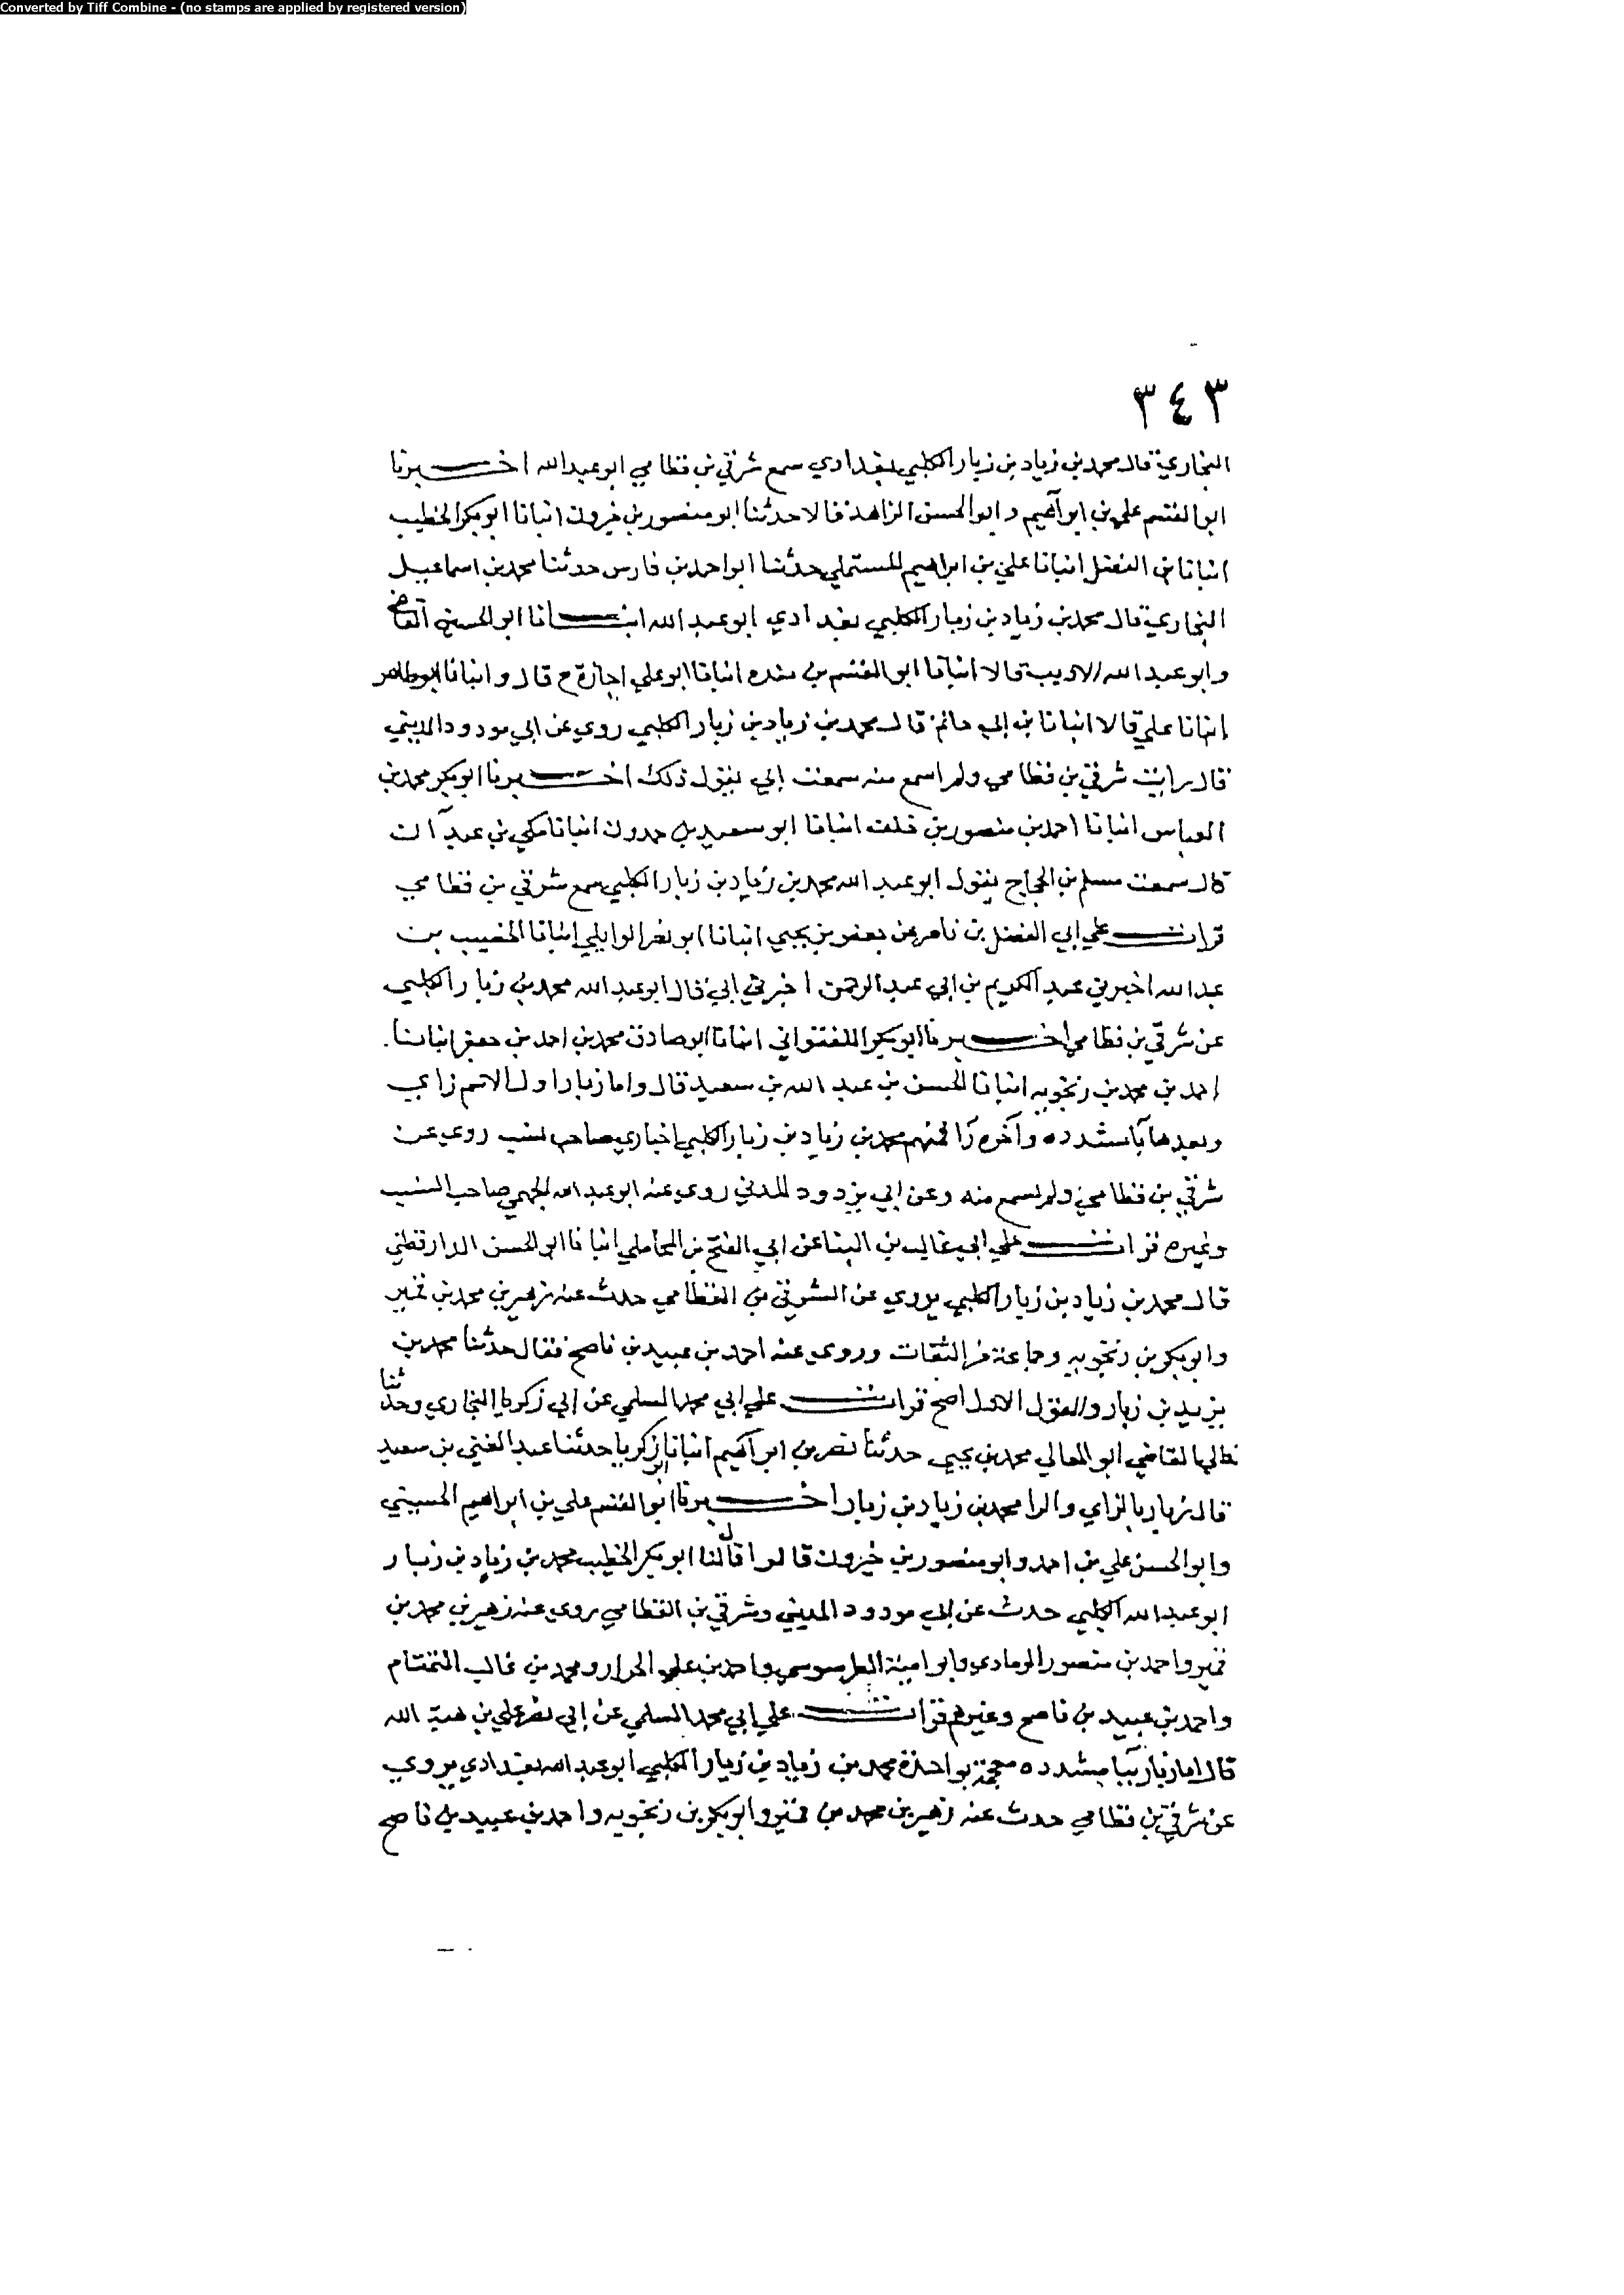 Converted by Tiff Combine - (no stamps are applied by registered version)
٣٤٣
البخاري قال محمد بن زياد بن زبار الكلبي بغدادي سمع شرقي بن قطامي ابو عبد الله اخبرنا
ابو القسم علي بن ابراهيم وابو الحسن الزاهد قالا حدثنا ابو منصور بن خيرون انبانا ابو بكر الخطيب
انبانا بن الفضل انبانا علي بن ابراهيم المستملي حدثنا ابو احمد بن فارس حدثنا محمد بن اسماعيل
البخاري قال محمد بن زياد بن زبار الكلبي بغدادي ابو عبد الله انبانا ابو الحسين القاضي
وابو عبد الله الاديب قالا انبانا ابو القسم بن منده انبانا ابو علي اجازة ح قال وانبانا ابو طاهر
انبانا علي قالا انبانا بن ابي حاتم قال محمد بن زياد بن زبار الكلبي روي عن ابي مودود المديني
قال رايت شرقي بن قطامي ولم اسمع منه سمعت ابي يقول ذلك اخبرنا ابو بكر محمد بن
العباس انبانا احمد بن منصور بن خلف انبانا ابو سعيد بن حمدون انبانا مكي بن عبدان
قال سمعت مسلم بن الحجاج يقول ابو عبد الله محمد بن زياد بن زبار الكلبي سمع شرقي بن قطامي
قرات علي ابي الفضل بن ناصر عن جعفر بن يحيي انبانا ابو نصر الوايلي انبانا الخصيب بن
عبد الله اخبرني عبد الكريم بن ابي عبد الرحمن اخبرني ابي قال ابو عبد الله محمد بن زبار الكلبي
عن شرقي بن قطامي اخبرنا ابو بكر اللفتواني انبانا ابو صادق محمد بن احمد بن جعفر انبانا
احمد بن محمد بن زنجويه انبانا الحسن بن عبد الله بن سعيد قال واما زبار اول الاسم زاي
وبعدها با مشدده واخره را فمنهم محمد بن زياد بن زبار الكلبي اخباري صاحب نسب روي عن
شرقي بن قطامي ولم يسمع منه وعن ابي يزدود المدني روي عنه ابو عبد الله الجهمي صاحب النسب
وغيره قرات علي ابي غالب بن البنا عن ابي الفتح بن المحاملي انبانا ابو الحسن الدارقطني
قال محمد بن زياد بن زبار الكلبي يروي عن الشرقي بن القطامي حدث عنه زهير بن محمد بن قمير
وابو بكر بن زنجويه وجماعة من الثقات وروي عنه احمد بن عبيد بن ناصح فقال حدثنا محمد بن
يزيد بن زبار والقول الاول اصح قرات علي ابي محمد السلمي عن ابي زكريا البخاري وحدثنا
خالي القاضي ابو المعالي محمد بن يحيي حدثنا نصر بن ابراهيم انبانا ابو زكريا حدثنا عبد الغني بن سعيد
قال زبار بالزاي والرا محمد بن زياد بن زبار اخبرنا ابو القسم علي بن ابراهيم الحسيني
وابو الحسن علي بن احمد وابو منصور بن خيرون قالوا قال لنا ابو بكر الخطيب محمد بن زياد بن زبار
ابو عبد الله الكلبي حدث عن ابي مودود المديني وشرقي بن القطامي روي عنه زهير بن محمد بن
قمير واحمد بن منصور الرمادي وابو امية الطرسوسي واحمد بن علي الخراز ومحمد بن غالب التمتام
واحمد بن عبيد بن ناصح وغيرهم قرات علي ابي محمد السلمي عن ابي نصر علي بن هبة الله
قال اما زبار ببا مشدده معجمة بواحدة محمد بن زياد بن زبار الكلبي ابو عبد الله بغدادي يروي
عن شرقي بن قطامي حدث عنه زهير بن محمد بن قمير وابو بكر بن زنجويه واحمد بن عبيد بن ناصح